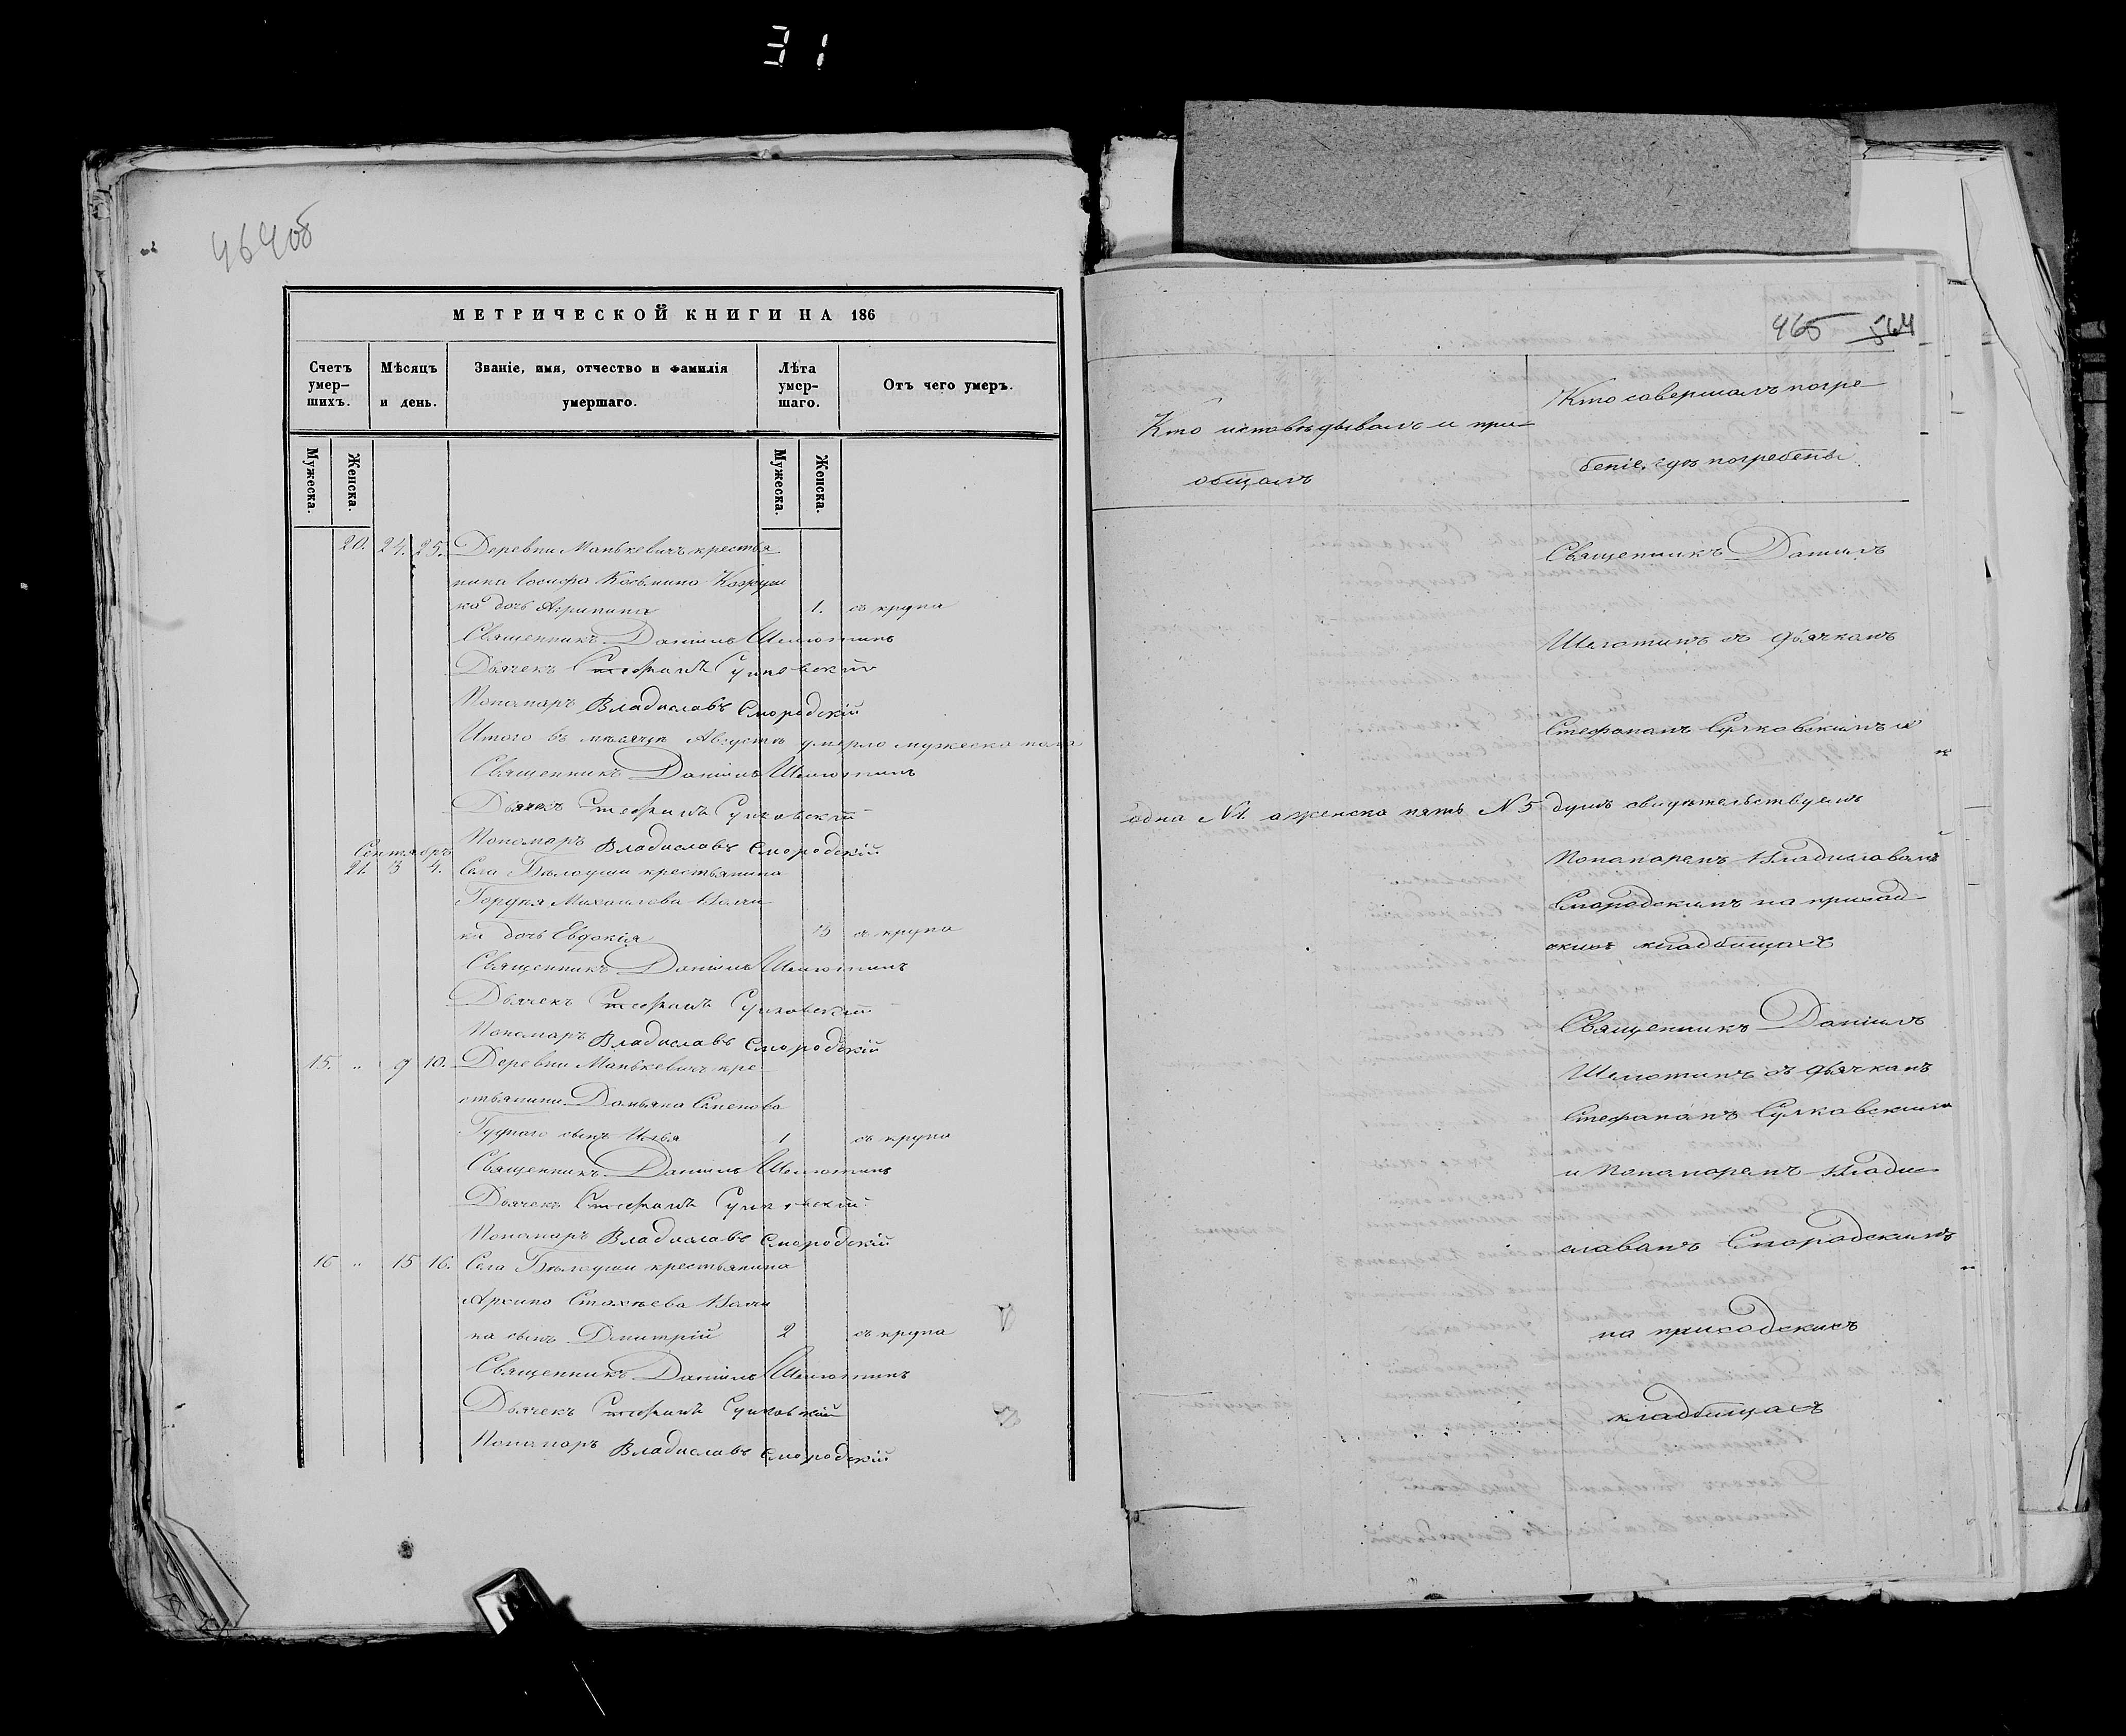 31
464об
МЕТРИЧЕСКОЙ КНИГИ НА 186
Счетъ умер-шихъ.
Мѣсяцъ и день.
Званіе, имя, отчество и фамилія умершаго.
Лѣта умер-шаго.
Отъ чего умеръ.
Мужеска.
Женска.
Мужеска.
Женска.
20. 24. 25. Деревни Манькевичъ крестья
нина Іосифа Косьмина
ка дочь Агрипина 1. съ крупа
Священникъ Даніилъ Шелютинъ
Дьячекъ Стефанъ Сулковскій
Пономарь Владиславъ Смородскій
Итого въ мѣсяцѣ Августѣ умерло мужеска пола
Священникъ Даніилъ Шелютинъ
Дьячекъ Стефанъ Сулковскій
Пономарь Владиславъ Смородскій
Сентябрь
21. 3 4. Села Бѣлоуши крестьянина
Михаилова
ки дочь Евдокія 3 съ крупа
Священникъ Даніилъ Шелютинъ
Дьячекъ Стефанъ Сулковскій
Пономарь Владиславъ Смородскій
15. „ 9 10. Деревни Манькевичъ кре
стьянина Домьяна Семенова
сынъ Илья 1 съ крупа
Священникъ Даніилъ Шелютинъ
Дьячекъ Стефанъ Сулковскій
Пономарь Владиславъ Смородскій
16 „ 15 16. Села Бѣлоуши крестьянина
Архипа Стахѣева
ка сынъ Дмитрій 2 съ крупа
Священникъ Даніилъ Шелютинъ
Дьячекъ Стефанъ Сулковскій
Пономарь Владиславъ Смородскій
465 564
Кто исповѣдывалъ и при-
общалъ
Кто совершалъ погре-
беніе, гдѣ погребены
Священникъ Даніилъ
Шелютинъ съ дьячкомъ
Стефаномъ Сулковскимъ и
одна №1. а женска пять №5 душъ свидѣтельствуемъ
Пономаремъ Владиславомъ
Смородскимъ на приход-
скихъ кладбищахъ
Священникъ Даніилъ
Шелютинъ съ дьячкомъ
Стефаномъ Сулковскимъ
и Пономаремъ Влади-
славомъ Смородскимъ
на приходскихъ
кладбищахъ